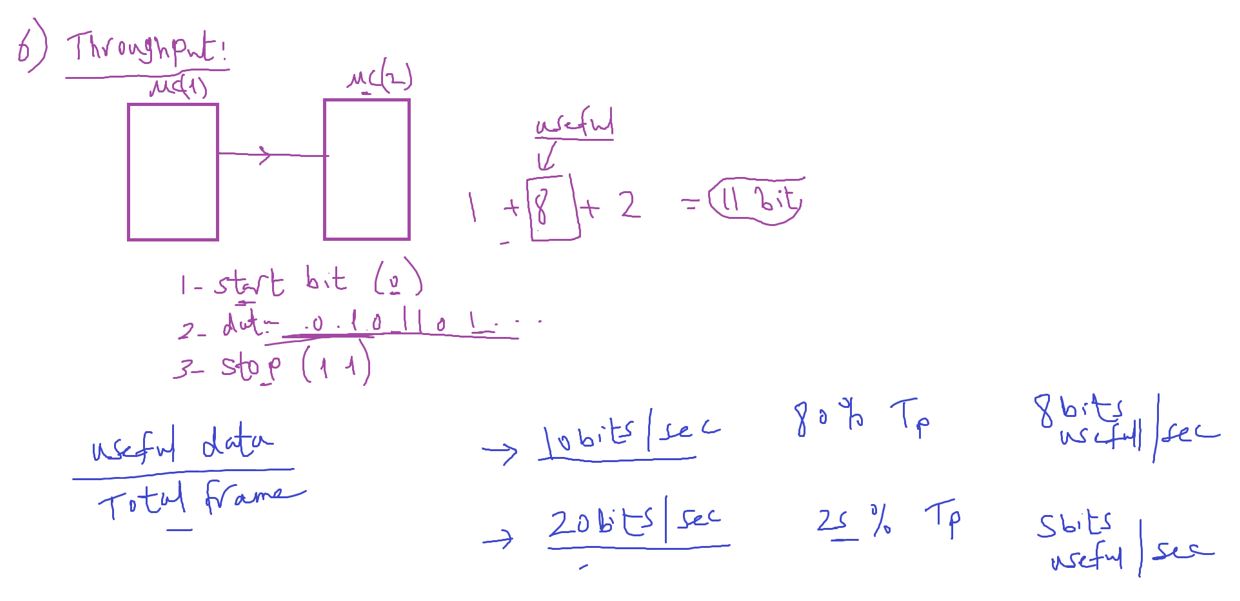 6) Throughput:
μc(1)
μc(2)
useful
1 + 8 + 2 = 11 bit
1- start bit (0)
2- data .0.10 11 0 1...
3- stop (1 1)
useful data
Total frame
→ 10bits/sec 80% Tp 8bits usefull/sec
→ 20bits/sec 25% Tp 5bits useful/sec